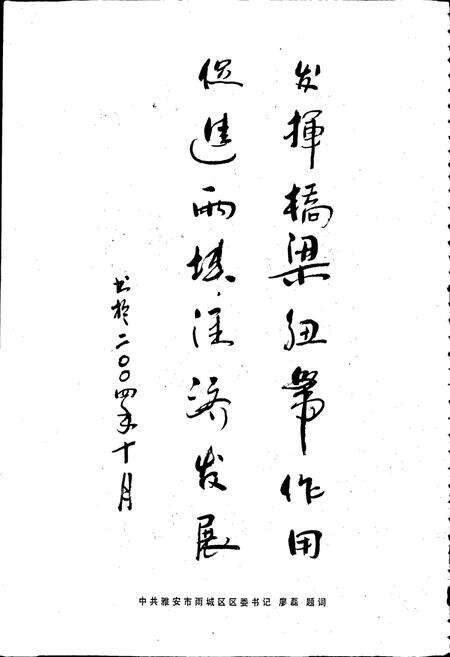 发揮橋梁纽帶作用
促進雨城经济发展
书於二〇〇四年十月
中共雅安市雨城区区委书记 廖磊 题词